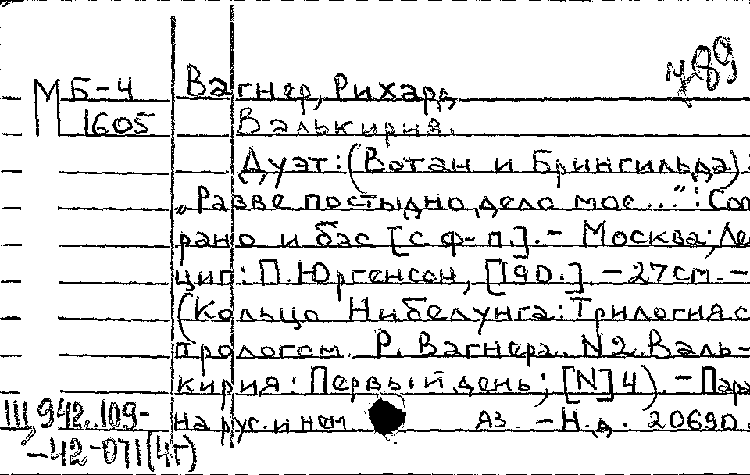 789
М Б-4 Вагнер, Рихард
1605 Валькирия.
Дуэт: (Вотан и Брингильда):
„Разве постыдно дело мое...": Соп
рано и бас [с ф-п.]. - Москва; Ле
циг: П. Юргенсон, [190.] - 27см. -
(Кольцо Нибелунга: Трилогия с
прологом Р. Вагнера. N2. Валь-
кирия: Первый день; [N] 4). - Пар
III, 942. 109- на рус. и нем АЗ - Н.д. 20690.
-42-071(4Г)